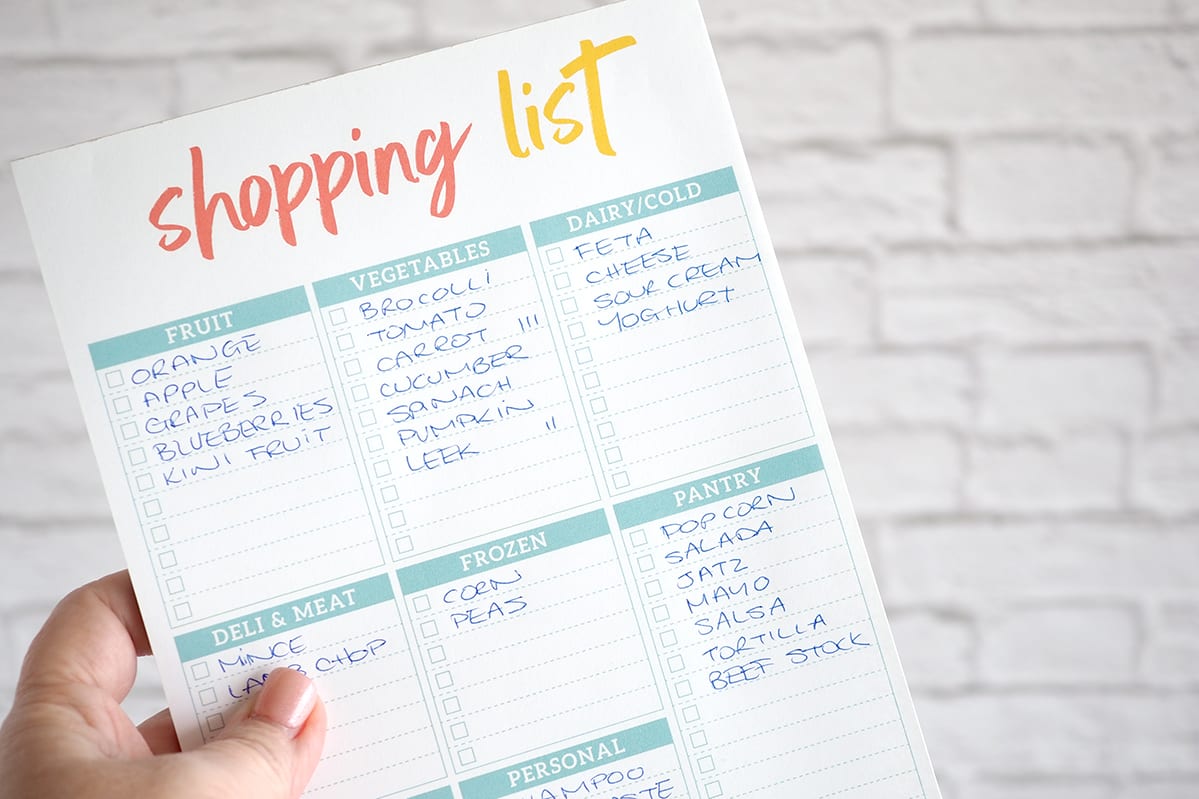 shopping list
FRUIT
ORANGE
APPLE
GRAPES
BLUEBERRIES
KIWI FRUIT
VEGETABLES
BROCOLLI
TOMATO
CARROT III
CUCUMBER
SPINACH
PUMPKIN
LEEK II
DAIRY/COLD
FETA
CHEESE
SOUR CREAM
YOGHURT
DELI & MEAT
MINCE
CHOP
FROZEN
CORN
PEAS
PANTRY
POPCORN
SALADA
JATZ
MAYO
SALSA
TORTILLA
BEEF STOCK
PERSONAL